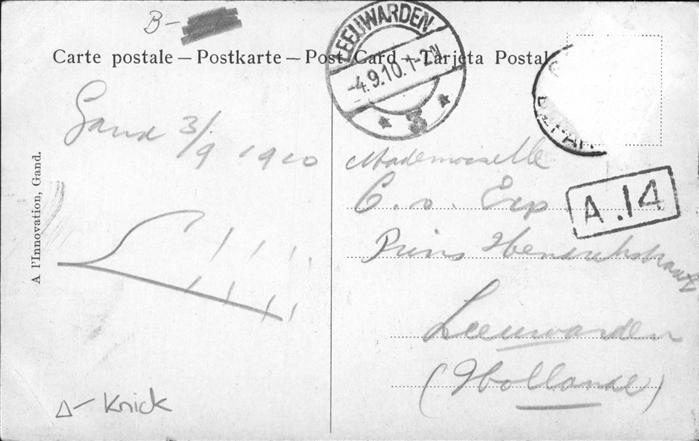 B-
Carte postale – Postkarte – Post Card – Tarjeta Postal
LEEUWARDEN
-4.9.10.1-2N
* 3 *
Gand 3/9 1910
A l'Innovation, Gand.
Mademoiselle
C. v. Erp
A.14
Prins Hendrikstraat
Leeuwarden
(Hollande)
Δ- Knick